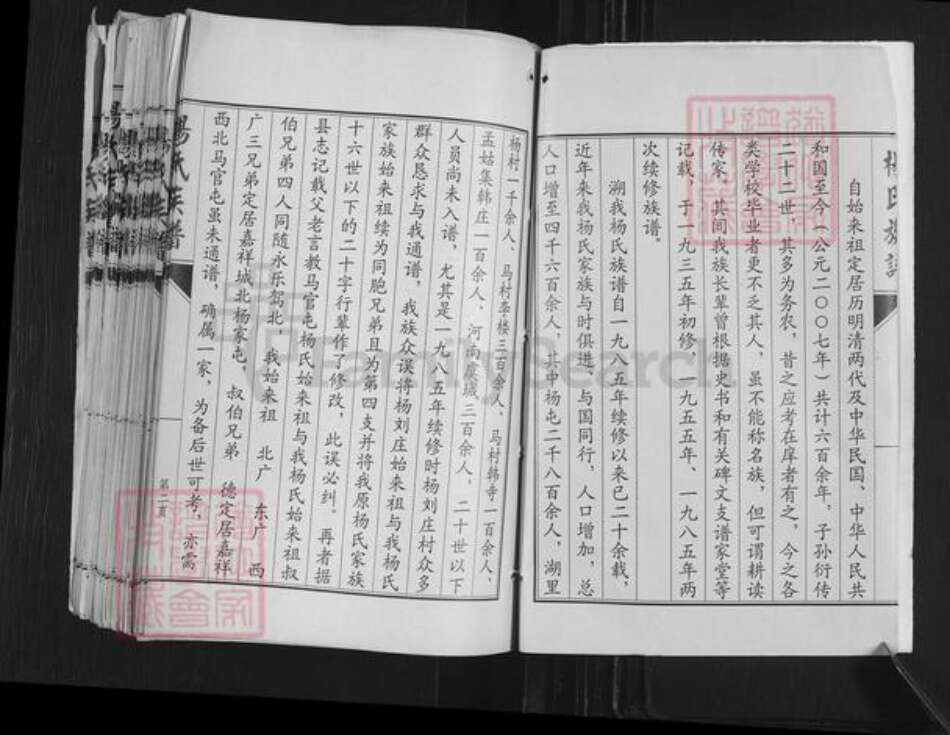 杨氏族谱
自始来祖定居历明清两代及中华民国、中华人民共
和国至今（公元二〇〇七年）共计六百余年，子孙衍传
二十二世，其多为务农，昔之应考在庠者有之，今之各
类学校毕业者更不乏其人，虽不能称名族，但可谓耕读
传家，其间我族长辈曾根据史书和有关碑文支谱家堂等
记载，于一九三五年初修，一九五五年、一九八五年两
次续修族谱。
溯我杨氏族谱自一九八五年续修以来已二十余载，
近年来我杨氏家族与时俱进，与国同行，人口增加，总
人口增至四千六百余人，其中杨屯二千八百余人，湖里
杨村一千余人、马村李楼三百余人、马村韩寺一百余人、
孟姑集韩庄一百余人、河南虞城三百余人，二十世以下
人员尚未入谱，尤其是一九八五年续修时杨刘庄村众多
群众恳求与我通谱，我族众误将杨刘庄始来祖与我杨氏
家族始来祖续为同胞兄弟且为第四支并将我原杨氏家族
十六世以下的二十字行辈作了修改，此误必纠。再者据
县志记载父老言教马官屯杨氏始来祖与我杨氏始来祖叔
伯兄弟四人同随永乐驾北，我始来祖 北广 东广 西
广三兄弟定居嘉祥城北杨家屯，叔伯兄弟 德定居嘉祥
西北马官屯虽未通谱，确属一家，为备后世可考，亦需
杨氏族谱
第二页
FamilySearch